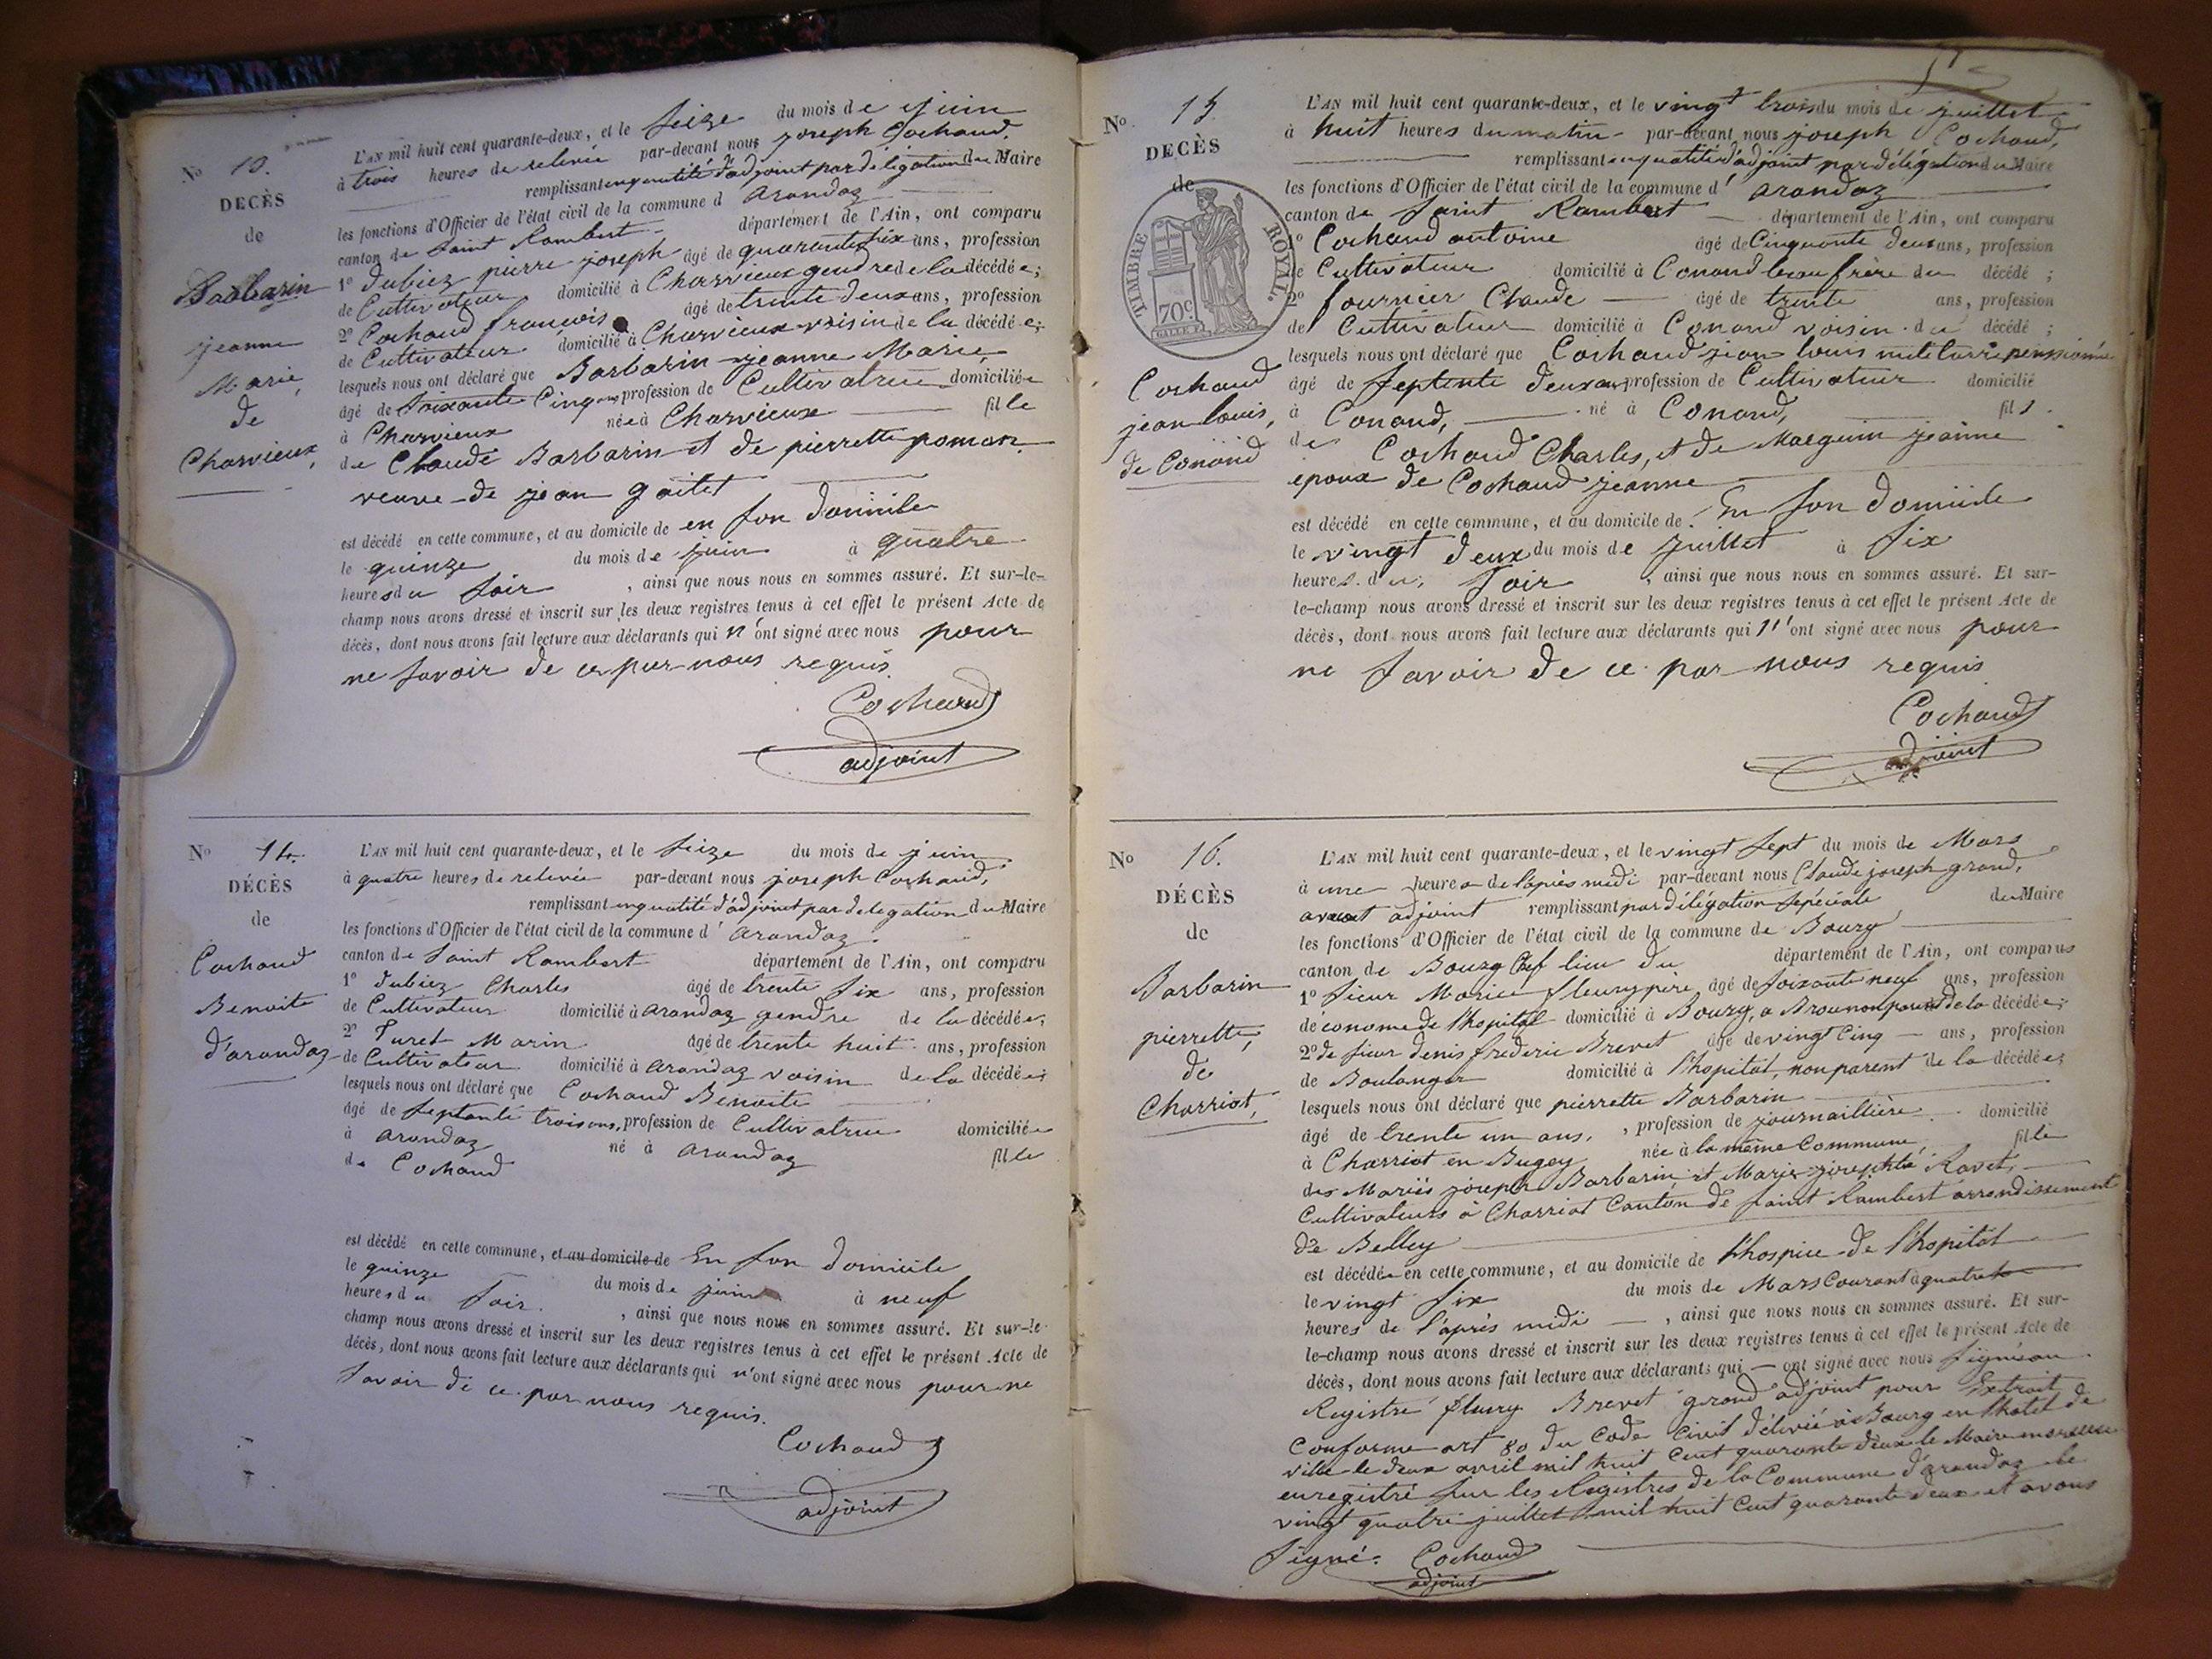 No 13.
DECÈS
de
Barbarin
jeanne
Marie,
de
Charvieux,
L'AN mil huit cent quarante-deux, et le seize du mois de juin
à trois heures de relevée par-devant nous joseph Cochaud,
remplissant en qualité d'adjoint par délégation du Maire
les fonctions d'Officier de l'état civil de la commune d arandaz
canton de Saint Rambert département de l'Ain, ont comparu
1o Dubiez pierre joseph âgé de quarante six ans, profession
de Cultivateur domicilié à Charvieux gendre de la décédée;
2o Cochaud francois âgé de trente deux ans, profession
de Cultivateur domicilié à Charvieux voisin de la décédée;
lesquels nous ont déclaré que Barbarin jeanne Marie,
âgé de soixante Cinq ans profession de Cultivatrice domiciliée
à Charvieux née à Charvieux fille
de Claude Barbarin et de pierrette poman
veuve de jean goitet
est décédé en cette commune, et au domicile de en son domicile
le quinze du mois de juin à quatre
heures du soir, ainsi que nous nous en sommes assuré. Et sur-le-
champ nous avons dressé et inscrit sur les deux registres tenus à cet effet le présent Acte de
décès, dont nous avons fait lecture aux déclarants qui n'ont signé avec nous pour
ne savoir de ce par nous requis.
Cochaud
adjoint
No 14.
DÉCÈS
de
Cochaud
Benoite
d'arandaz
L'AN mil huit cent quarante-deux, et le seize du mois de juin
à quatre heures de relevée par-devant nous joseph Cochaud,
remplissant en qualité d'adjoint par delegation du Maire
les fonctions d'Officier de l'état civil de la commune d' arandaz.
canton de Saint Rambert département de l'Ain, ont comparu
1o Dubiez Charles âgé de trente six ans, profession
de Cultivateur domicilié à arandaz gendre de la décédée,
2o Turet Marin âgé de trente huit ans, profession
de Cultivateur domicilié à arandaz voisin de la décédée;
lesquels nous ont déclaré que Cochaud Benoite
âgé de septante trois ans, profession de Cultivatrice domiciliée
à arandaz né à arandaz fille
de Cochaud
est décédé en cette commune, et au domicile de En son domicile
le quinze du mois de juin à neuf
heures du soir. , ainsi que nous nous en sommes assuré. Et sur-le-
champ nous avons dressé et inscrit sur les deux registres tenus à cet effet le présent Acte de
décès, dont nous avons fait lecture aux déclarants qui n'ont signé avec nous pour ne
savoir de ce par nous requis.
Cochaud
adjoint
No 15.
DECÈS
de
TIMBRE ROYAL.
70c.
Cochaud
jean louis,
de Conand
L'AN mil huit cent quarante-deux, et le vingt trois du mois de juillet
à huit heures du matin par-devant nous joseph Cochaud,
remplissant en qualité d'adjoint par délégation du Maire
les fonctions d'Officier de l'état civil de la commune d' arandaz
canton de Saint Rambert département de l'Ain, ont comparu
1o Cochaud antoine âgé de Cinquante deux ans, profession
de Cultivateur domicilié à Conand beau frère du décédé;
2o fournier Claude âgé de trente ans, profession
de Cultivateur domicilié à Conand voisin du décédé;
lesquels nous ont déclaré que Cochaud jean louis militaire pensionné
âgé de septente deux ans profession de Cultivateur domicilié
à Conand, né à Conand, fils
de Cochaud Charles, et de Marguin jeanne
epoux de Cochaud jeanne
est décédé en cette commune, et au domicile de. En son domicile
le vingt deux du mois de juillet à six
heures du; soir, ainsi que nous nous en sommes assuré. Et sur-
le-champ nous avons dressé et inscrit sur les deux registres tenus à cet effet le présent Acte de
décès, dont nous avons fait lecture aux déclarants qui n'ont signé avec nous pour
ne savoir de ce par nous requis
Cochaud
adjoint
No 16.
DÉCÈS
de
Barbarin
pierrette,
de
Charriot,
L'AN mil huit cent quarante-deux, et le vingt sept du mois de Mars
à une heure de l'après midi par-devant nous Claude joseph grand,
avocat adjoint remplissant par délégation spéciale du Maire
les fonctions d'Officier de l'état civil de la commune de Bourg
canton de Bourg Chef lieu du département de l'Ain, ont comparus
1o sieur Morice fleury père âgé de soixante neuf ans, profession
de économe de l'hopital domicilié à Bourg, a Brou non parent de la décédée;
2o de sieur denis frederic Brevet âgé de vingt Cinq ans, profession
de Boulanger domicilié à l'hopital, non parent de la décédée;
lesquels nous ont déclaré que pierrette Barbarin
âgé de trente un ans, , profession de journaillière domicilié
à Charriot en Bugey née à la même Commune, fille
des Mariés joseph Barbarin et Marie josephte Ravet,
Cultivateurs à Charriot Canton de Saint Rambert arrondissement
de Belley
est décédée en cette commune, et au domicile de l'hospice de l'hopital
le vingt six du mois de Mars Courant à quatre
heures de l'après midi, ainsi que nous nous en sommes assuré. Et sur-
le-champ nous avons dressé et inscrit sur les deux registres tenus à cet effet le présent Acte de
décès, dont nous avons fait lecture aux déclarants qui ont signé avec nous signé au
Registre fleury Brevet grand adjoint pour Extrait
Conforme art 80 du Code Civil délivré à Bourg en l'hotel de
ville le deux avril mil huit Cent quarante deux le Maire
enregistré sur les Registres de la Commune d'arandaz le
vingt quatre juillet mil huit Cent quarante deux et avons
signé. Cochaud
adjoint